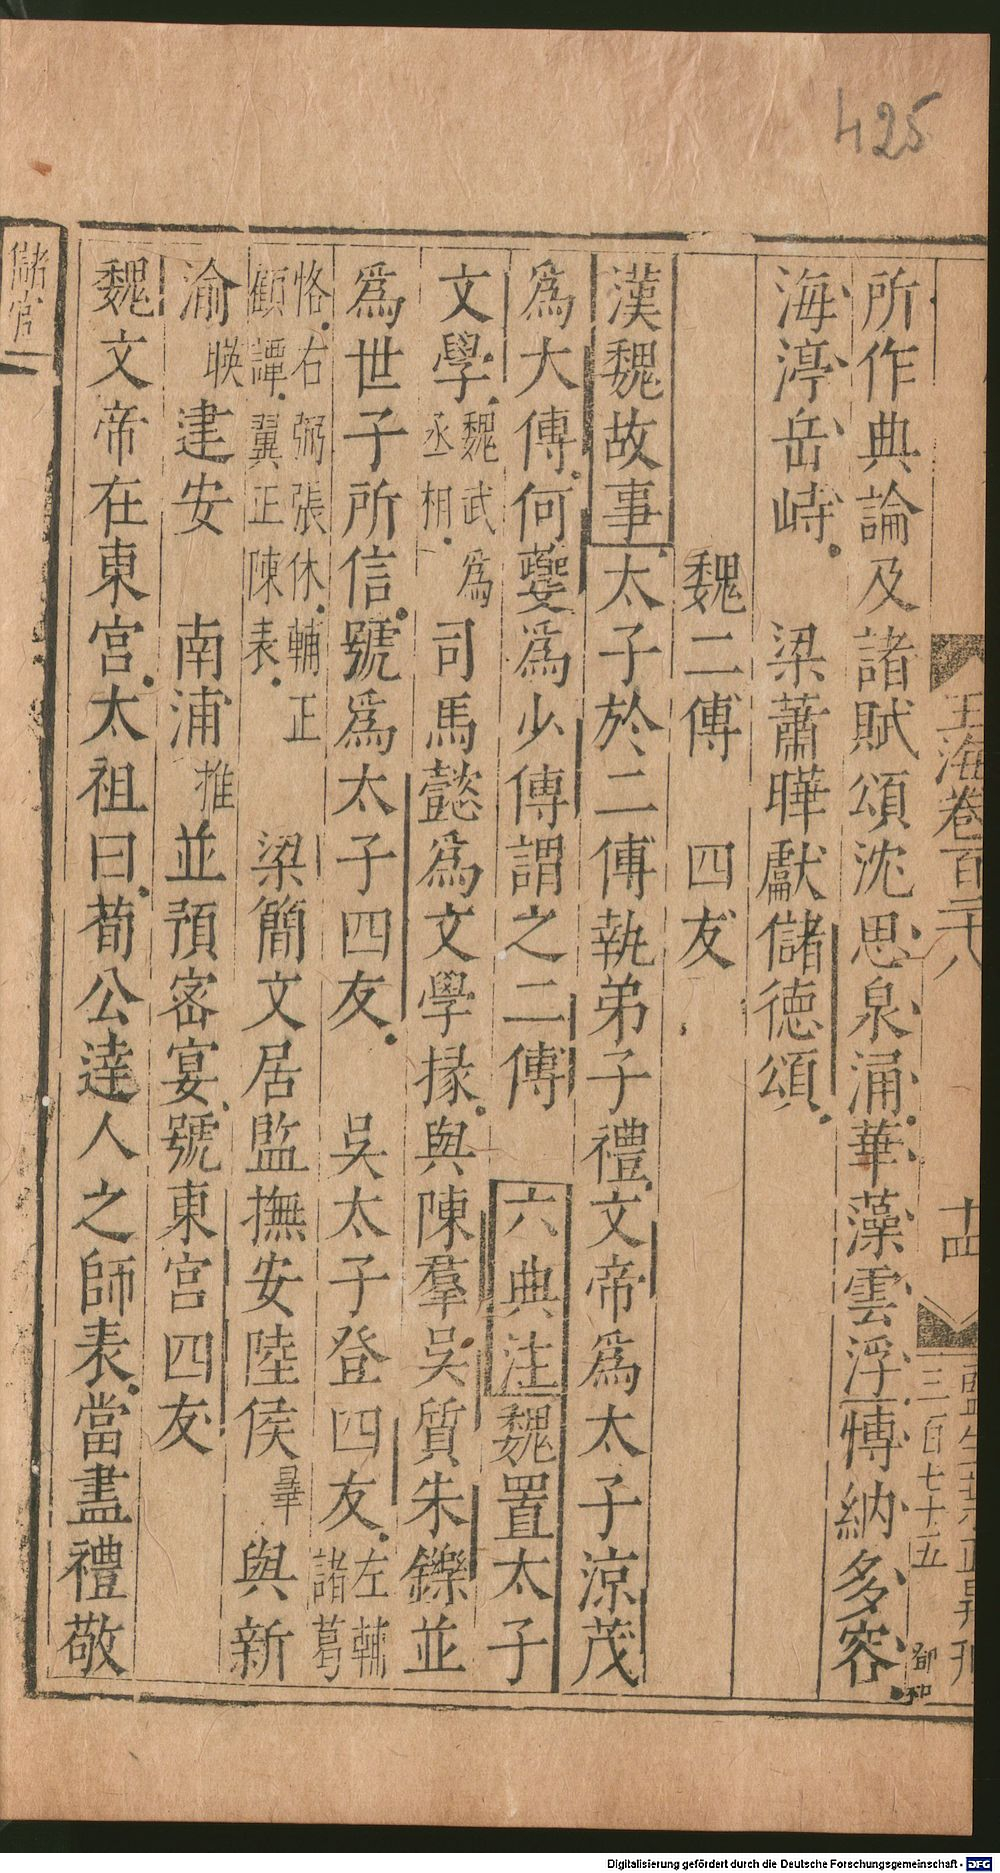 425
玉海卷百二十八
十四
三百七十五
所作典論及諸賦頌沈思泉涌華藻雲浮博納多容
海渟岳峙　梁蕭曄獻儲德頌
魏二傅　四友
漢魏故事太子於二傅執弟子禮文帝爲太子涼茂
爲太傅何夔爲少傅謂之二傅　六典注魏置太子
文學魏武爲丞相司馬懿爲文學掾與陳羣吳質朱鑠並
爲世子所信號爲太子四友　吳太子登四友左輔諸葛
恪右弼張休輔正顧譚翼正陳表　梁簡文居監撫安陸侯曅與新
渝暎建安　南浦推並預密宴號東宮四友
魏文帝在東宮太祖曰荀公達人之師表當盡禮敬
儲宮
Digitalisierung gefördert durch die Deutsche Forschungsgemeinschaft - DFG